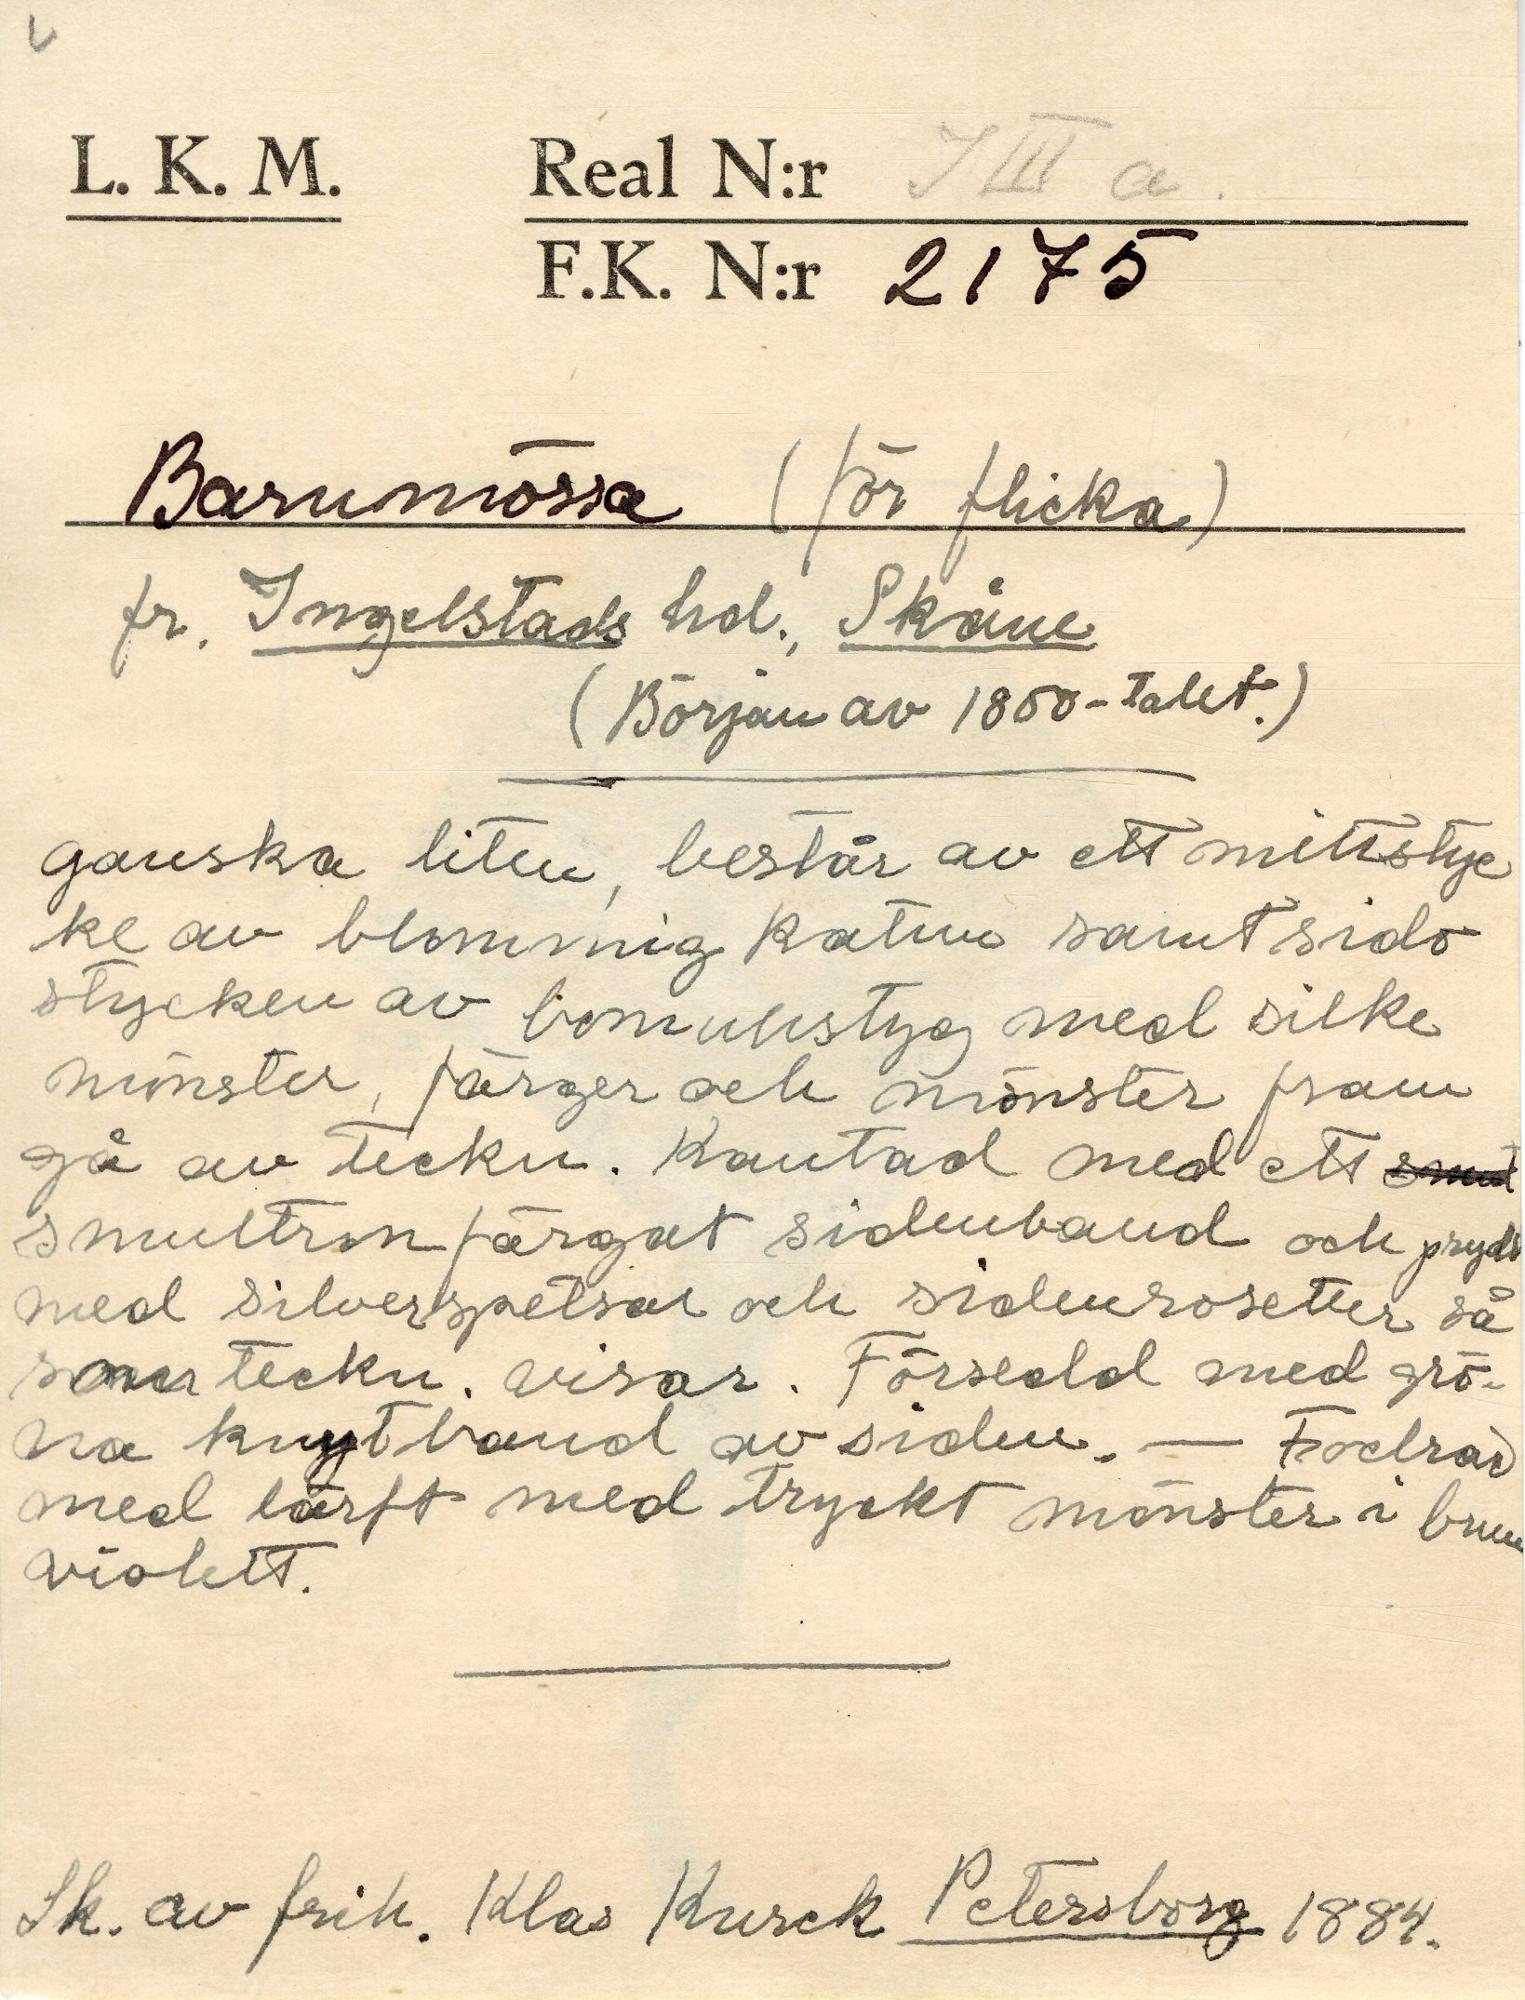 L. K. M. Real N:r I III a.
F.K. N:r 2175
Barnmössa (för flicka)
fr. Ingelstads hd., Skåne
(Början av 1800-talet.)
ganska liten, består av ett mittstyc
ke av blommig kattun samt sido
stycken av bomullstyg med silke
mönster, färger och mönster fram
gå av teckn. Kantad med ett smult
smultronfärgat sidenband och prydd
med silverspetsar och sidenrosetter så
som teckn. visar. Försedd med grö-
na knytband av siden. — Fodrad
med lärft med tryckt mönster i brun
violett.
Sk. av frih. Klas Kurck Petersborg 1884.